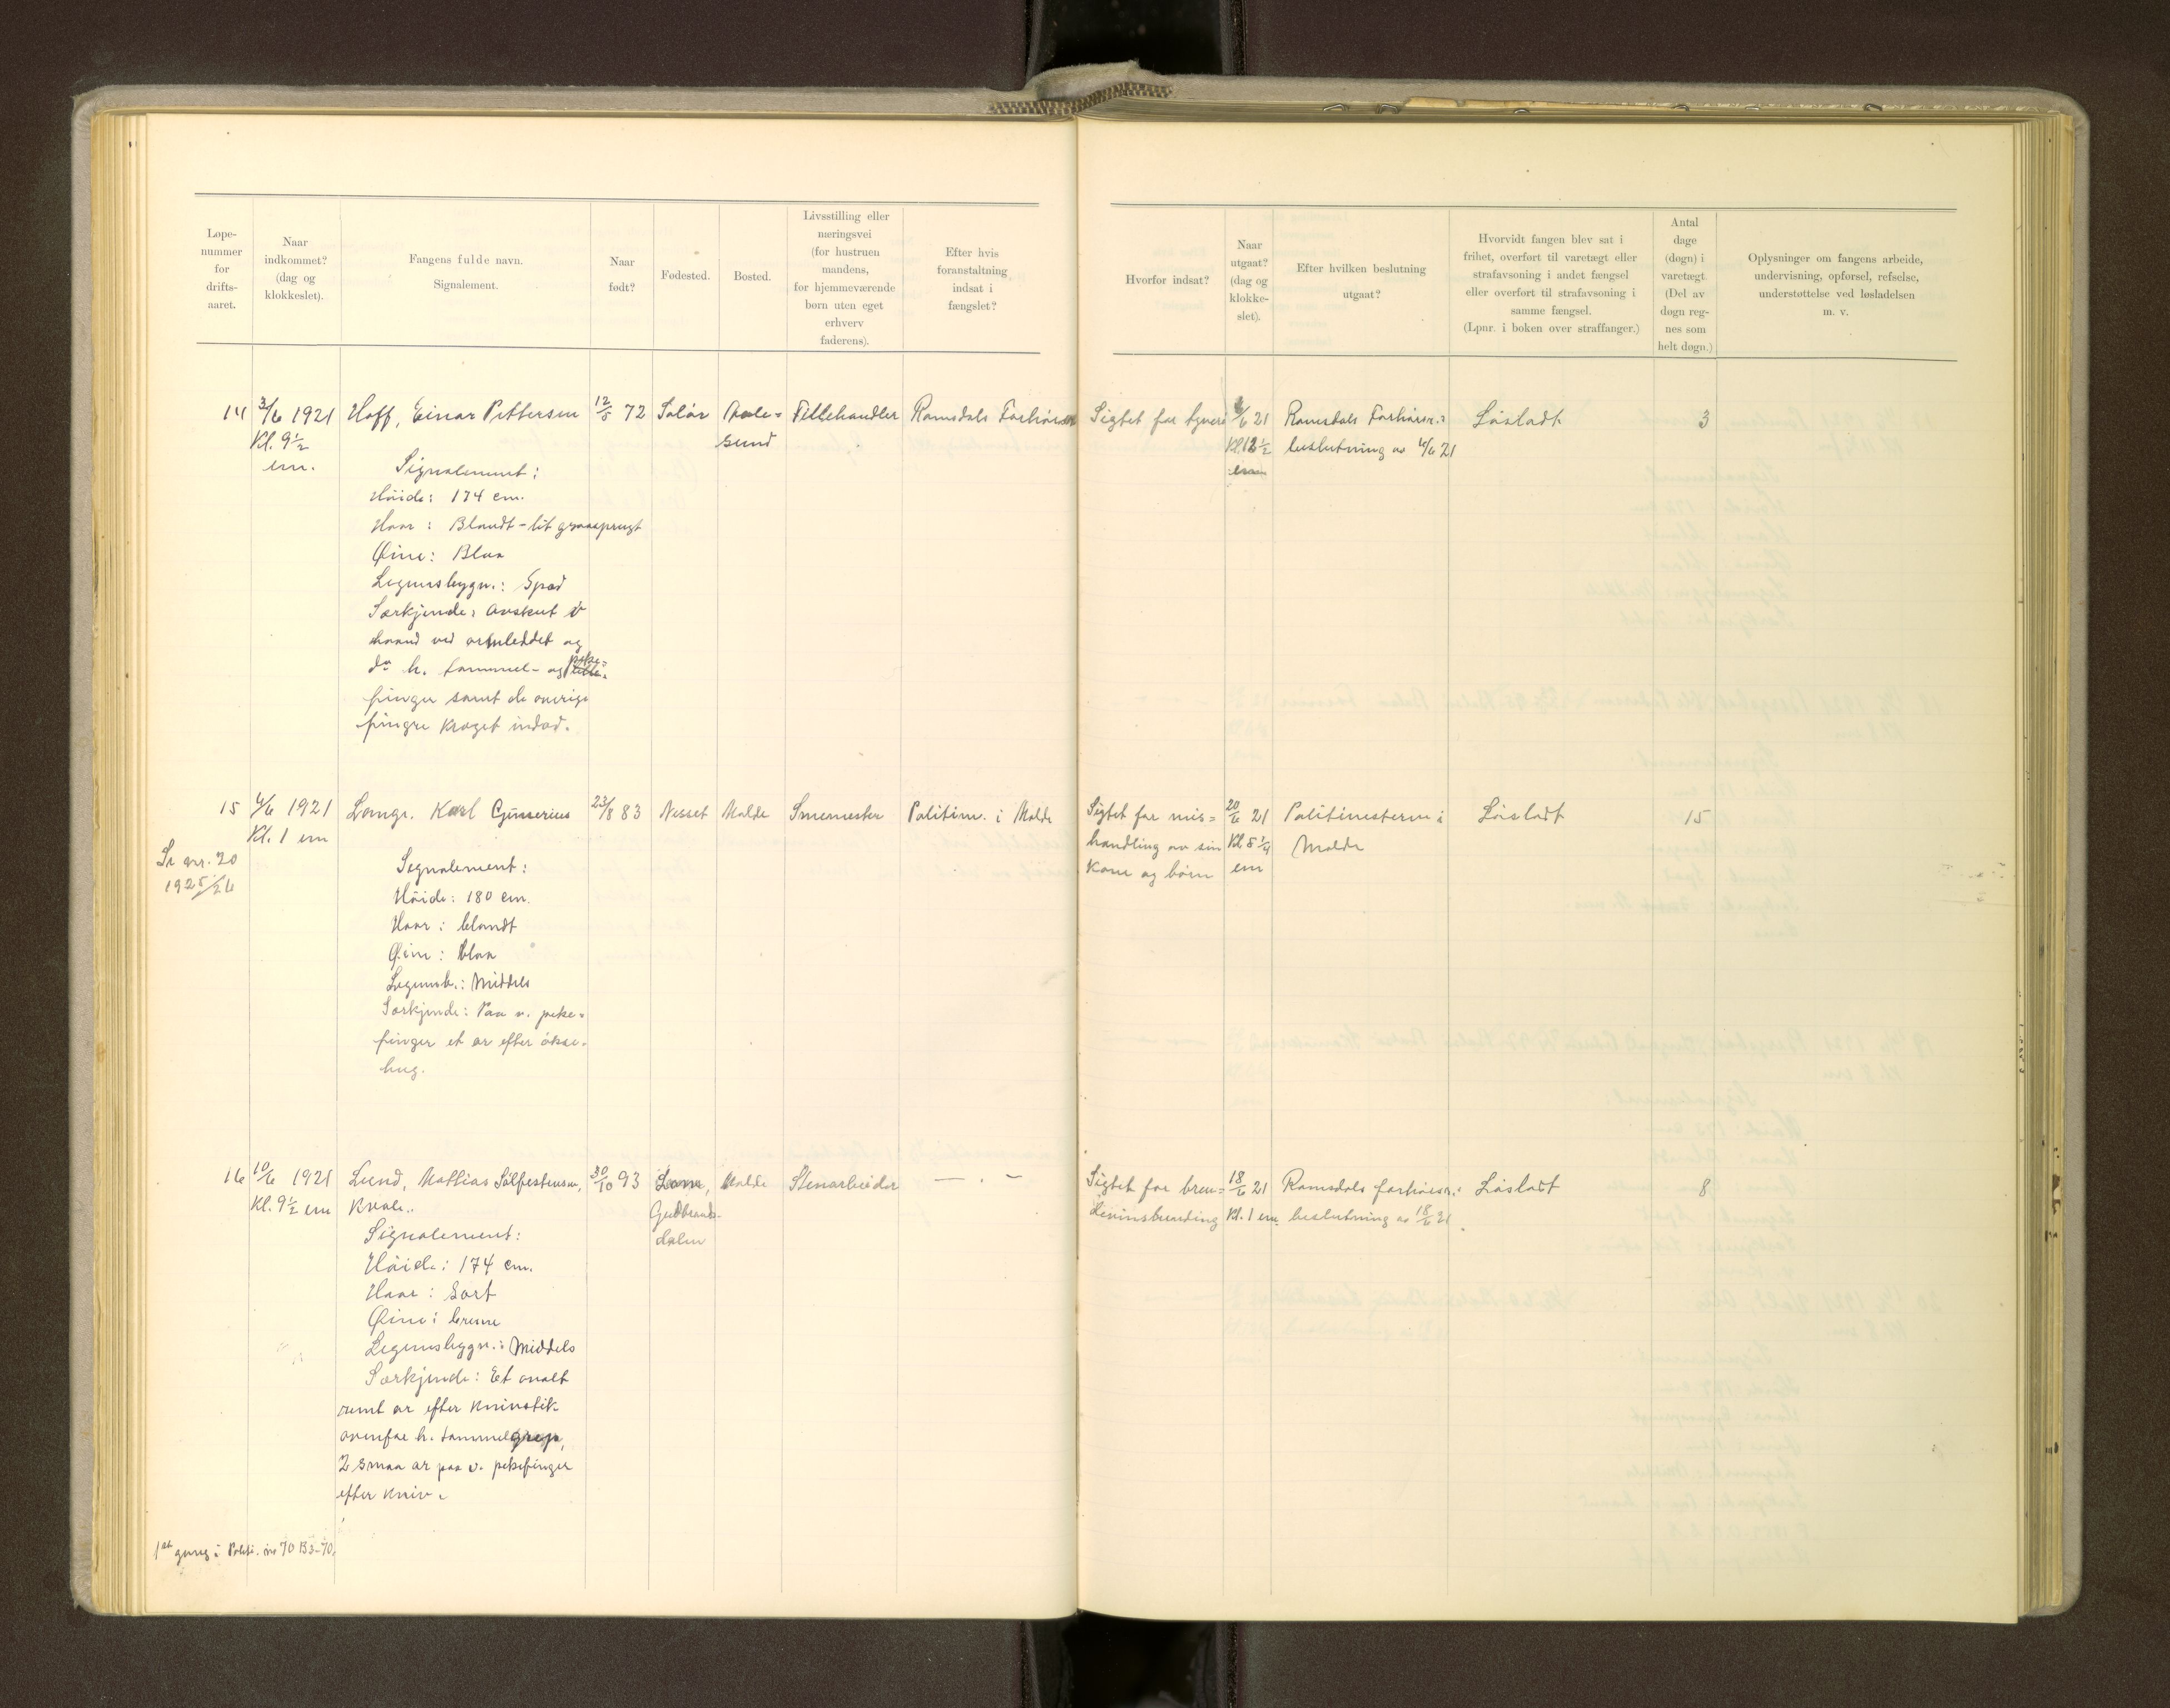 Løpe-
nummer
for
drifts-
aaret.
Naar
indkommet?
(dag og
klokkeslet).
Fangens fulde navn.
Signalement.
Naar
født?
Fødested.
Bosted.
Livsstilling eller
næringsvei
(for hustruen
mandens,
for hjemmeværende
børn uten eget
erhverv
faderens).
Efter hvis
foranstaltning
indsat i
fængslet?
Hvorfor indsat?
Naar
utgaat?
(dag og
klokke-
slet).
Efter hvilken beslutning
utgaat?
Hvorvidt fangen blev sat i
frihet, overført til varetægt eller
strafavsoning i andet fængsel
eller overført til strafavsoning i
samme fængsel.
(Lpnr. i boken over straffanger.)
Antal
dage
(døgn) i
varetægt.
(Del av
døgn reg-
nes som
helt døgn.)
Oplysninger om fangens arbeide,
undervisning, opførsel, refselse,
understøttelse ved løsladelsen
m. v.
14 3/6 1921 Hoff, Einar Pettersen 12/5 72 Solør Aale= Fillehandler Romsdals Forhørsr. Sigtet for tyveri 6/6 21 Romsdals Forhørsr.: Løsladt 3
Kl. 9½ sund Kl. 12½ beslutning av 4/6 21
em.
Signalement:
Høide: 174 cm.
Haar: Blandt - lit graasprengt
Øine: Blaa
Legemsbygn.: Spæd
Særkjende: Avskut v
haand ved armleddet og
do h. tommel- og peke=
finger samt de øvrige
fingre kroget indad.
15 6/6 1921 Lange. Karl Gunerius 23/8 83 Nesset Molde Smemester Politim. i Molde Sigtet for mis= 20/6 21 Politimesteren i Løsladt 15
Kl. 1 em handling av sin Kl 5¼ Molde
kone og børn em
Se nr. 20
1925/26
Signalement:
Høide: 180 cm.
Haar: blandt
Øine: blaa
Legemsb.: Middels
Særkjende: Paa v. peke=
finger et ar efter økse-
hug.
16 10/6 1921 Lund, Mathias Sølfestersen, 30/10 93 Lom, Molde Stenarbeider — . — Sigtet for bren= 18/6 21 Romsdals forhørsr.: Løsladt 8
Kl. 9½ em Gudbrands- devinsbrænding Kl. 1 em. beslutning av 18/6 21
dalen
Signalement:
Høide: 174 cm.
Haar: Sort
Øine: brune
Legemsbygn.: Middels
Særkjende: Et ovalt
rundt ar efter knivstik
ovenfor h. tommelgrep,
2 smaa ar paa v. pekefinger
efter kniv.